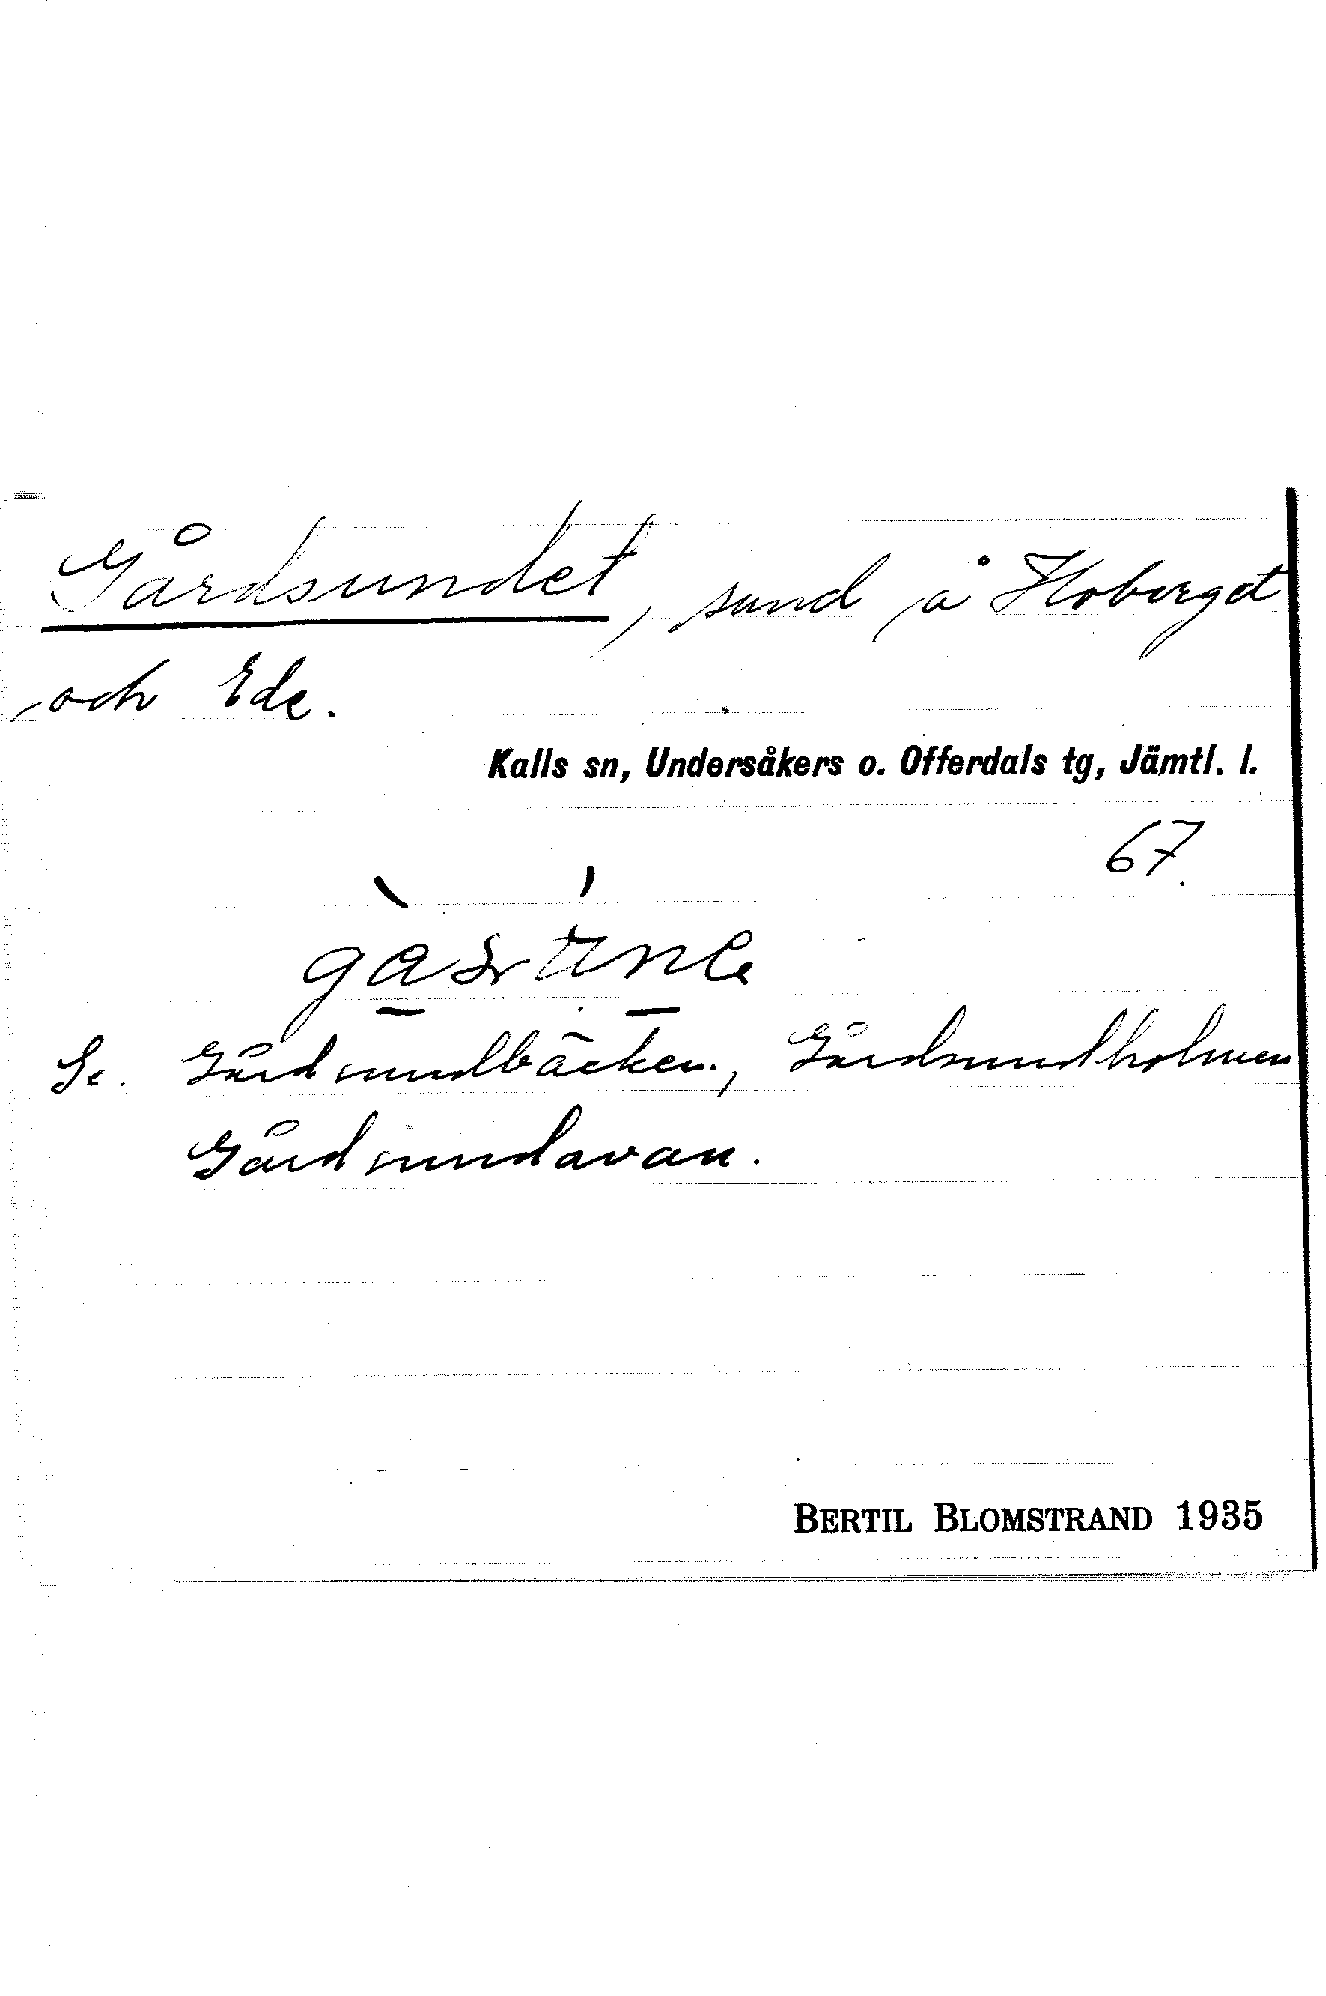 Gårdsundet, sund å Hoberget
och Ede.
Kalls sn, Undersåkers o. Offerdals tg, Jämtl. l.
67.
Se. Gårdsundbäcken, Gårdsundholmen
Gårdsundavan.
BERTIL BLOMSTRAND 1935